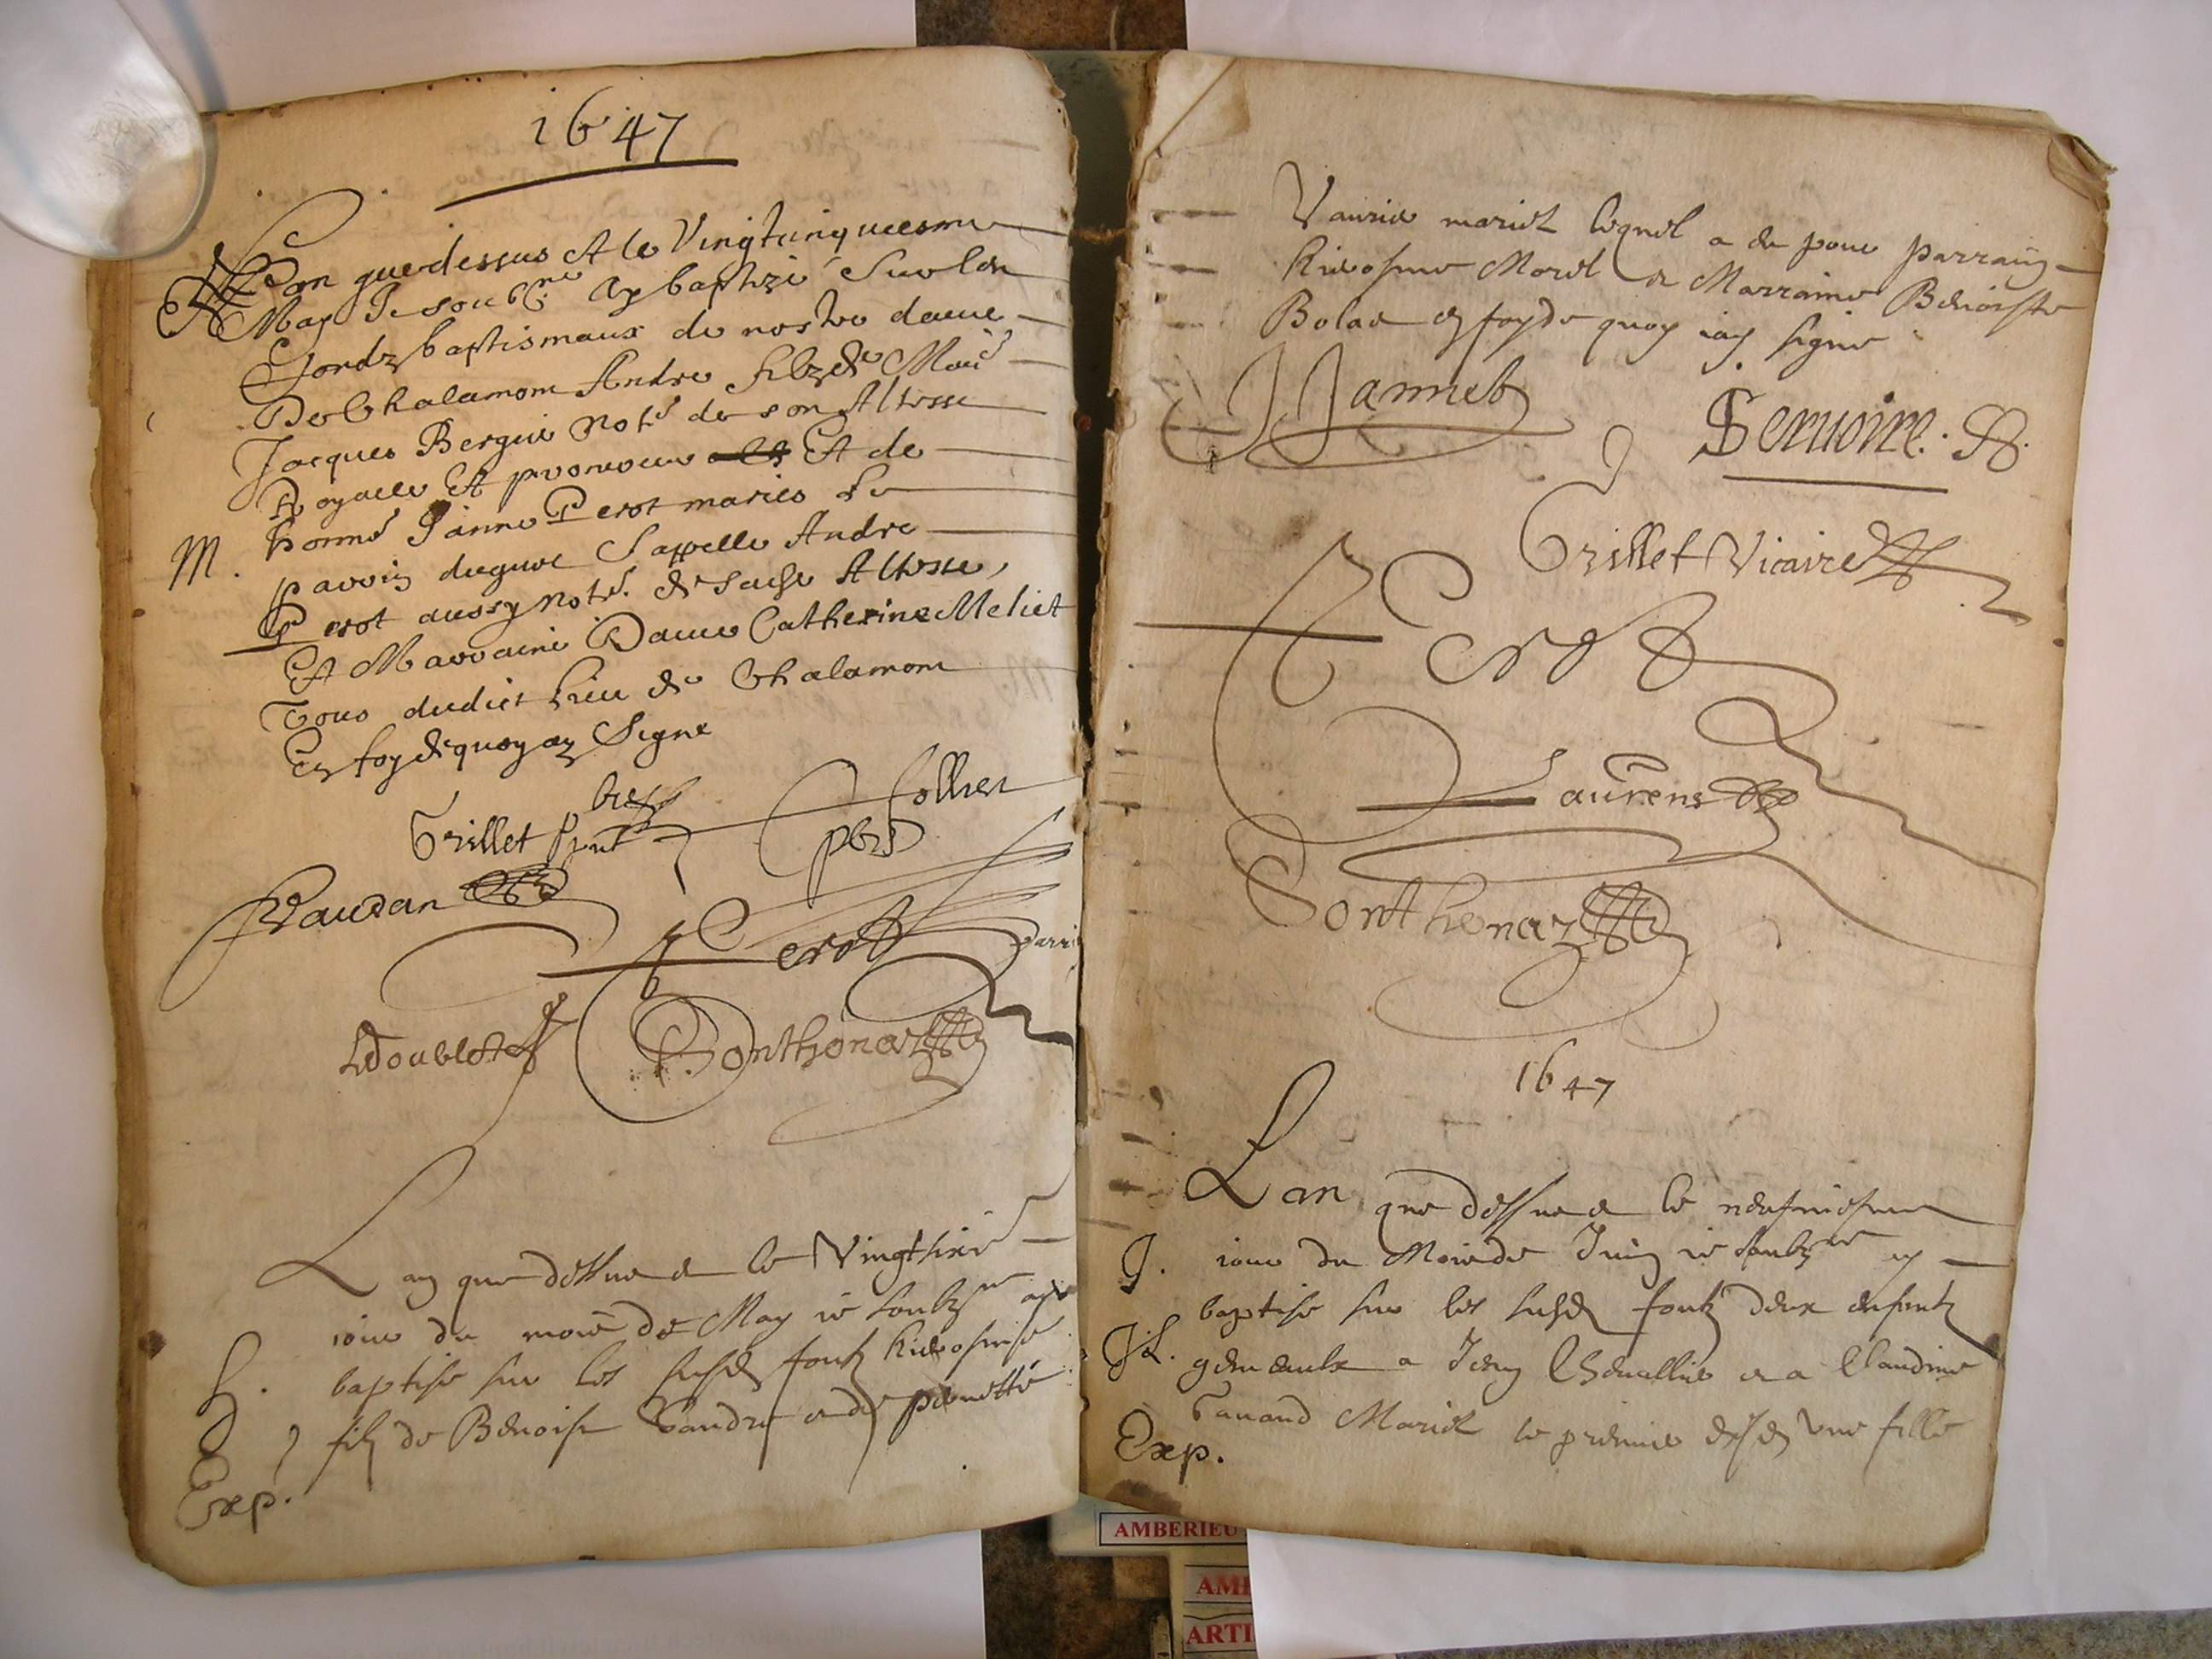 1647
Lan que dessus Et le Vingtcinquiesme
May Je soubsne Ay baptizé Sur les
Fondz baptismaux de nostre dame
De Chalamont Andre filz de Me
Jacques Bergier Notre de son Altesse
Royalle Et procureur Et de
M. honne Janne Perot maries Le
parrin duquel Sappelle Andre
Perot aussy Notre. de sadte Altesse,
Et Marraine Dame Catherine Meliet
Tous dudict lieu de Chalamont
En foy de quoy ay Signe
Trillet pbre
Follier
pbre
Vaudan
Perot
parrin
Ponthonaz
Lan que dessus et le Vingtsixie
jour du mois de May ie soubzne ay
baptise sur les susdt fontz
filz de Benoist et de pernette
Exp.
Vaurie mariet lequel a eu pour parraing
Morel et Marraine Benoiste
Bolas en foy de quoy iay signe
J Jannet
Seruoire.
Trillet Vicaire
Perot
Laurens
Ponthenaz
1647
Lan que dessus et le neufuiesme
J. iour du Mois de Juing ie soubzne ay
baptise sur les susdt fontz deux enfantz
J.L. gemeaulx a Jean Cheuallier et a Claudine
Mariet le premier est une fille
Exp.
AMBERIEU
AMB
ARTI